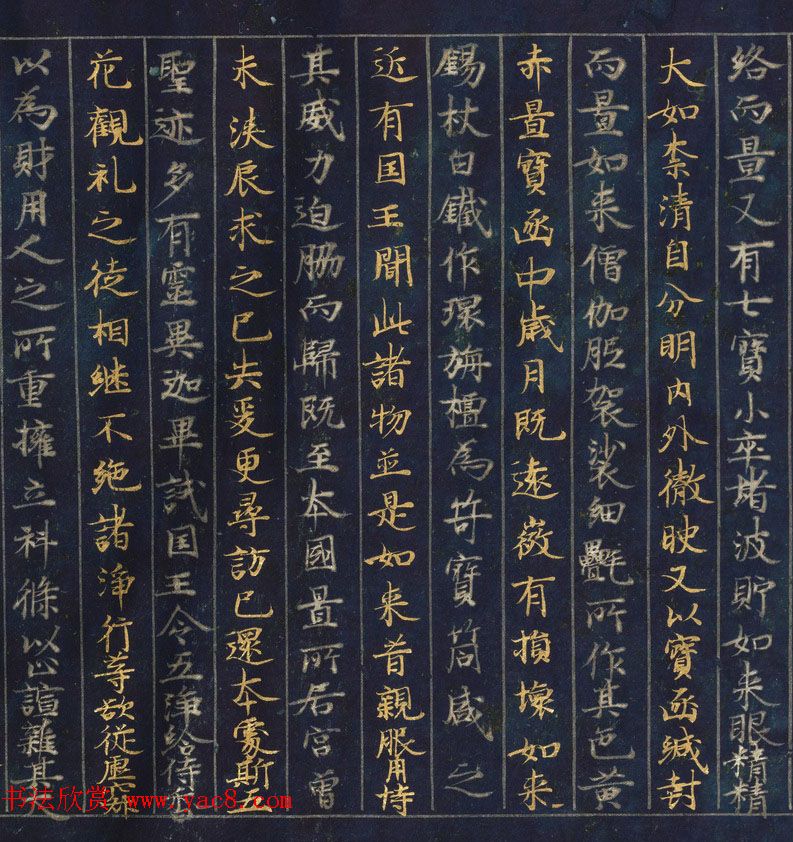 絡而置又有七寶小卒堵波貯如来眼精精
大如柰清白分明内外徹映又以寶函緘封
而置如来僧伽胝袈裟細㲲所作其色黄
赤置寶函中歲月既遠微有損壞如来
錫杖白鐵作環栴檀為笴寶筒盛之
近有国王聞此諸物並是如来昔親服用恃
其威力迫脇而歸既至本國置所居宮曾
未浹辰求之已失爰更尋訪已還本處斯五
聖迹多有靈異迦畢試国王令五淨給侍香
花觀礼之徒相継不絶諸淨行等欲從虛寂
以為財用人之所重擁立科條以止諠雜其大
书法欣赏 www.yac8.com